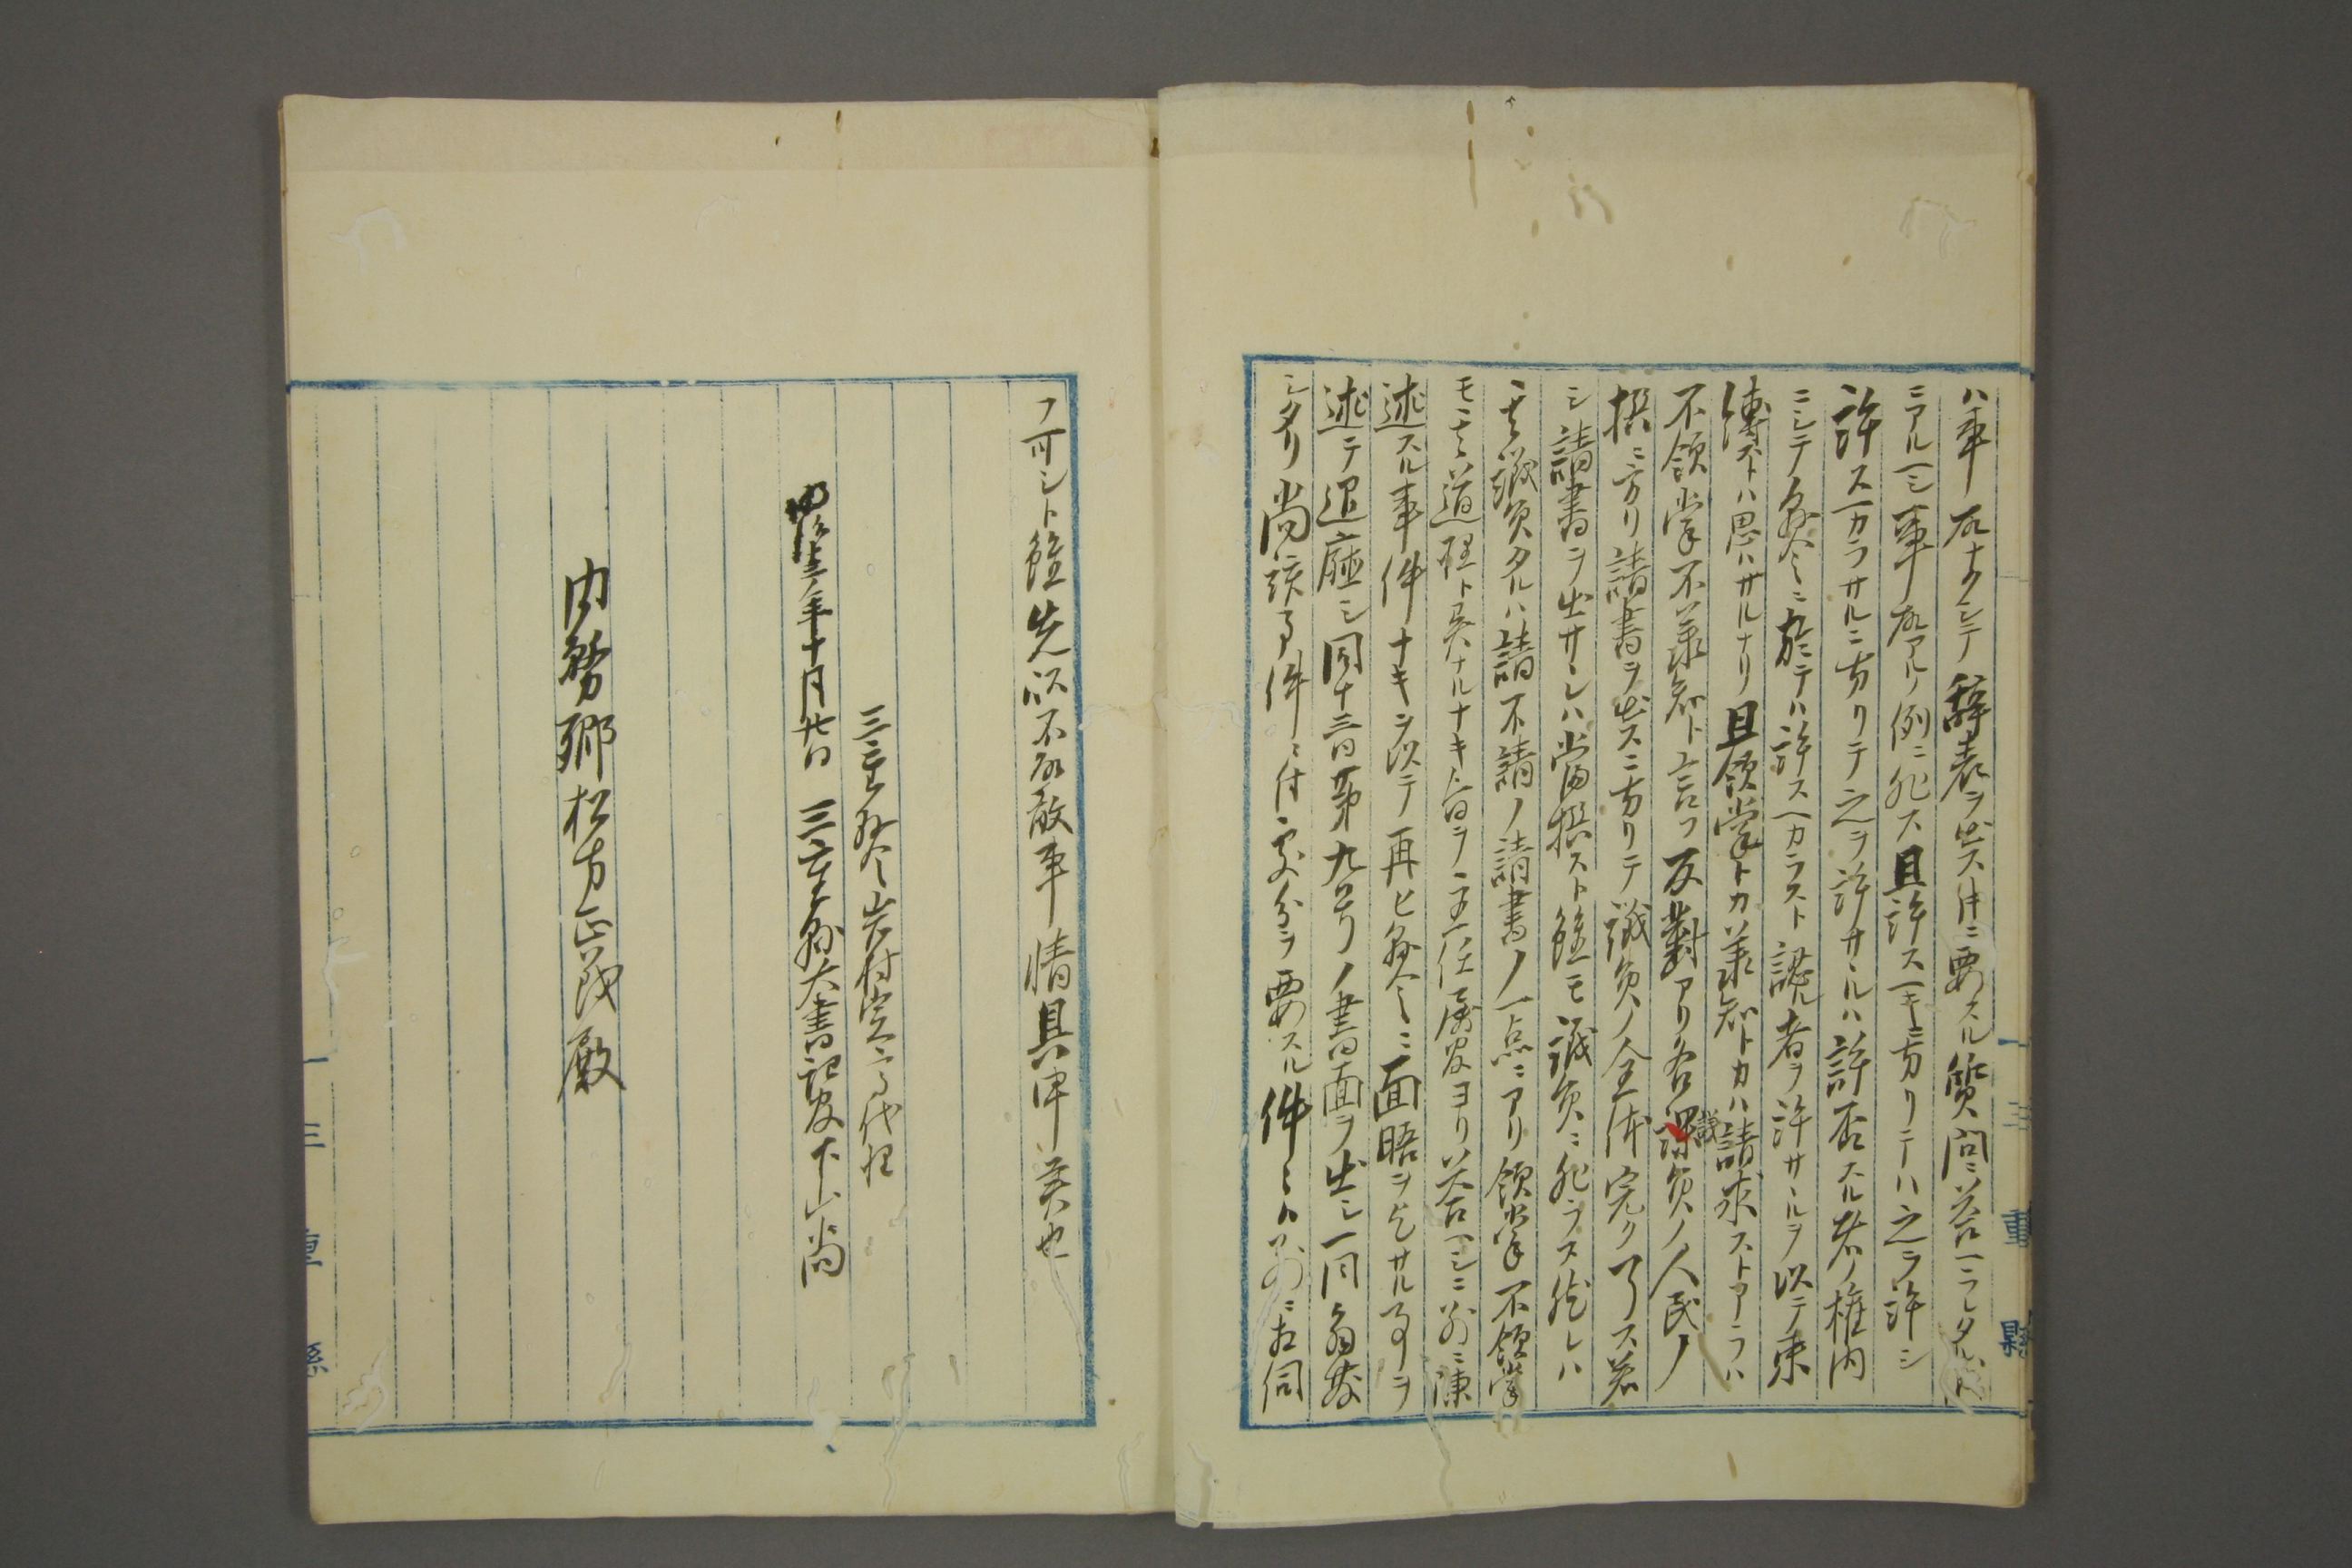 ハ事故ナクシテ辞表ヲ出ス件ニ要スル質問ニ答ヘラレタルハ
ニアルヘシ事故アル例ニ非ス且許スヘキニ方リテハ之ヲ許シ
許スヘカラサルニ方リテ之ヲ許サヽルハ許否スル者ノ権内
ニシテ県令ニ於テハ許スヘカラスト認ル者ヲ許サヽルヲ以テ束
縛ストハ思ハサルナリ且領掌トカ承知トカハ請求ストアラハ
不領掌不承知ト言フ反対アリ各議員ノ人民ノ
撰ニ方リ請書ヲ出スニ方リテ議員ノ全体完ク了ス若
シ請書ヲ出サヽレハ当撰スト雖モ議員ニ非ラス然レハ
其議員タルハ請不請ノ請書ノ一点ニアリ領掌不領掌
モ其道理ト異ナルナキ旨ヲ主任属官ヨリ答ヘシニ別ニ陳
述スル事件ナキヲ以テ再ヒ県令ニ面晤ヲ乞サル事ヲ
述テ退庁シ同十三日第九号ノ書面ヲ出シ一同解散
シタリ尚該事件ニ付処分ヲ要スル件々ハ別ニ相伺
フ可シト雖先以不取敢事情具申候也
三重県令岩村定高代理
明治十三年十月廿日 三重県大書記官下山尚
内務卿松方正義殿
三重縣
三重縣